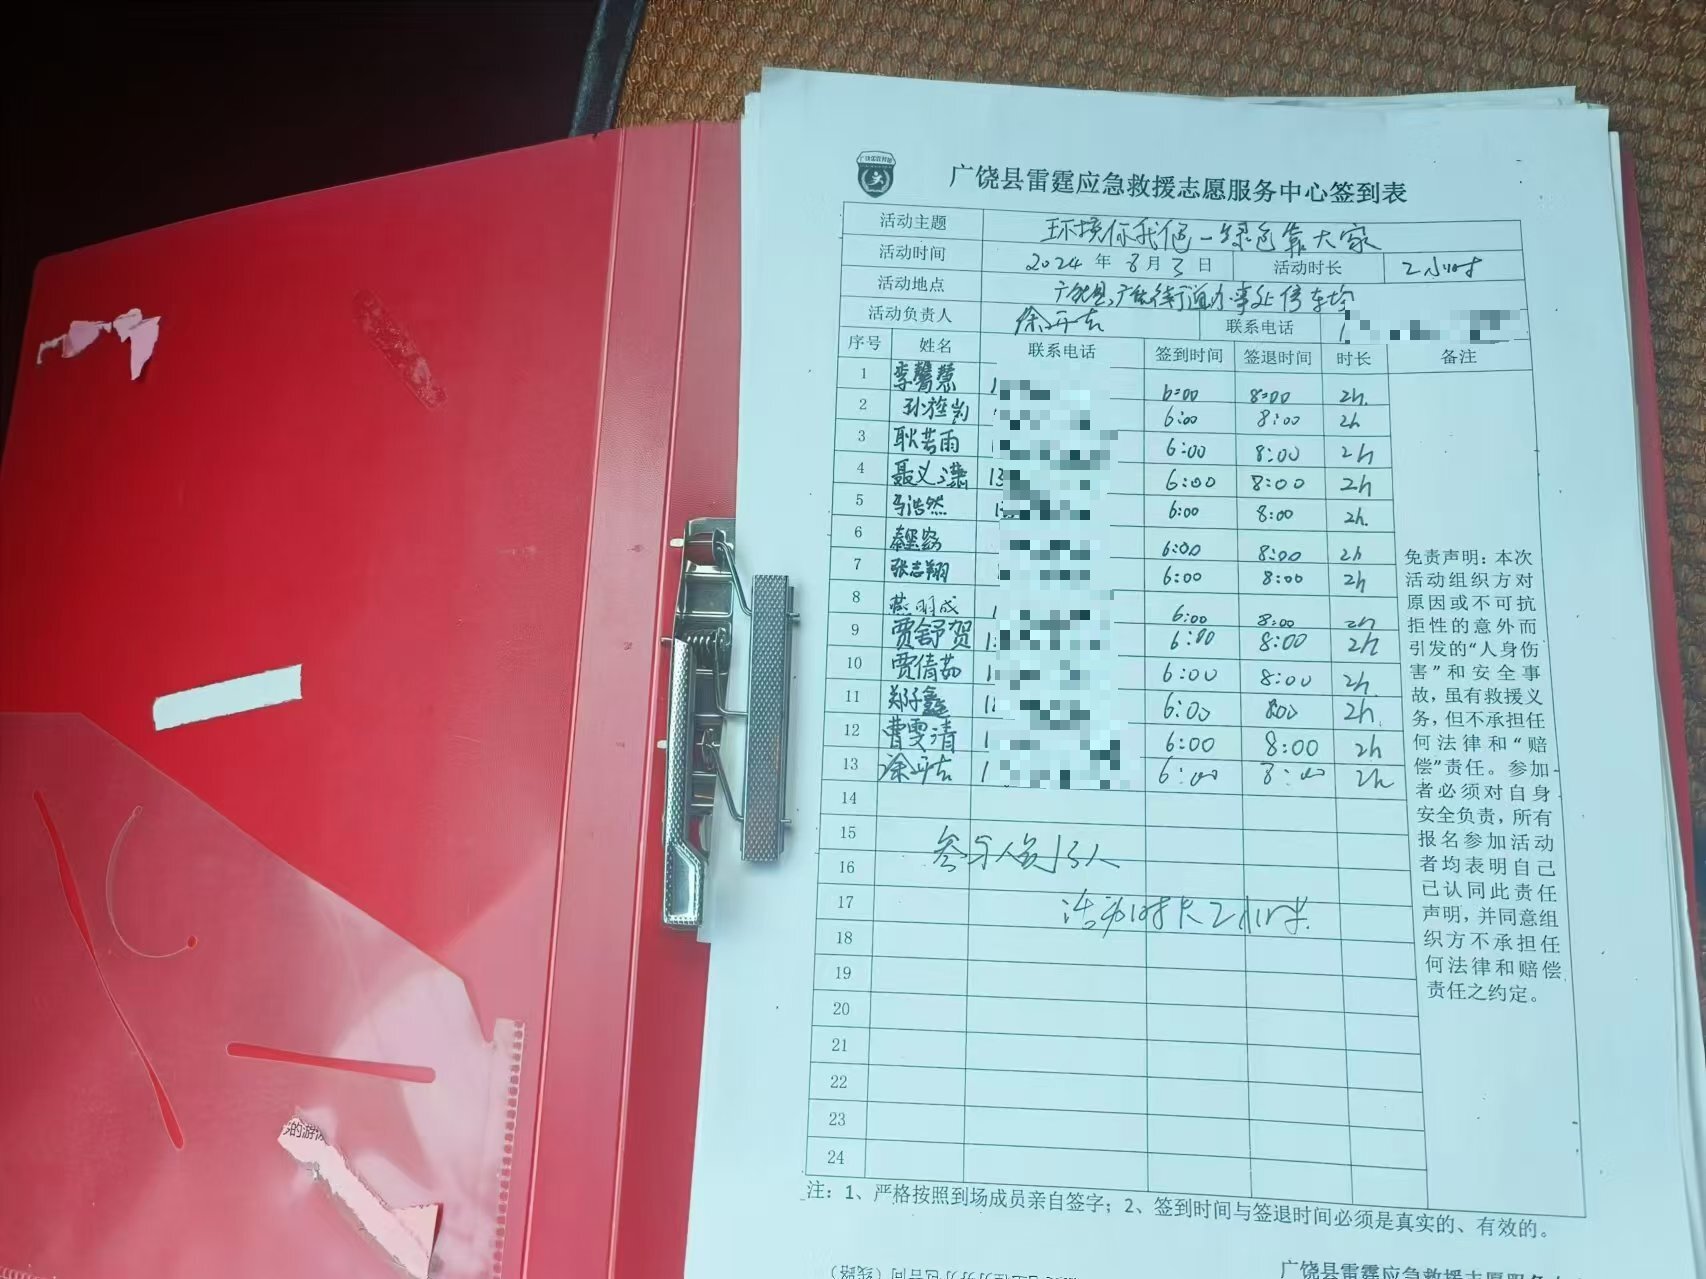 广饶县雷霆应急救援志愿服务中心签到表
活动主题 环境你我他一绿色靠大家
活动时间 2024年8月3日 活动时长 2小时
活动地点 广饶县广饶街道办事处停车场
活动负责人 徐开吉 联系电话 1
序号 姓名 联系电话 签到时间 签退时间 时长 备注
1 李馨慧 1 6:00 8:00 2h.
2 孙 6:00 8:00 2h
3 耿若雨 6:00 8:00 2h
4 聂义潇 13 6:00 8:00 2h
5 马浩然 1 6:00 8:00 2h.
6 秦 6:00 8:00 2h
7 张志翔 6:00 8:00 2h
8 燕明成 1 6:00 8:00 2h
9 贾舒贺 1 6:00 8:00 2h
10 贾倩茹 1 6:00 8:00 2h.
11 郑子鑫 1 6:00 800 2h.
12 曹雯清 1 6:00 8:00 2h
13 徐开吉 1 6:00 8:00 2h
14
15
16
17
18
19
20
21
22
23
24
参与人员13人
活动时长2小时
免责声明：本次
活动组织方对
原因或不可抗
拒性的意外而
引发的“人身伤
害”和安全事
故，虽有救援义
务，但不承担任
何法律和“赔
偿”责任。参加
者必须对自身
安全负责，所有
报名参加活动
者均表明自己
已认同此责任
声明，并同意组
织方不承担任
何法律和赔偿
责任之约定。
注：1、严格按照到场成员亲自签字；2、签到时间与签退时间必须是真实的、有效的。
广饶县雷霆应急救援志愿服务
的游